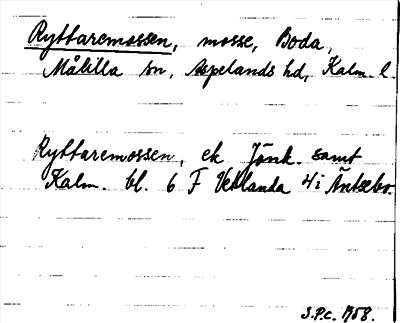 Ryttaremossen, mosse, Boda,
Målilla sn, Aspelands hd, Kalm. l.
Ryttaremossen, ek Jönk. samt
Kalm. bl. 6 F Vetlanda 4i Äntsebo.
S.P.c. 1958.